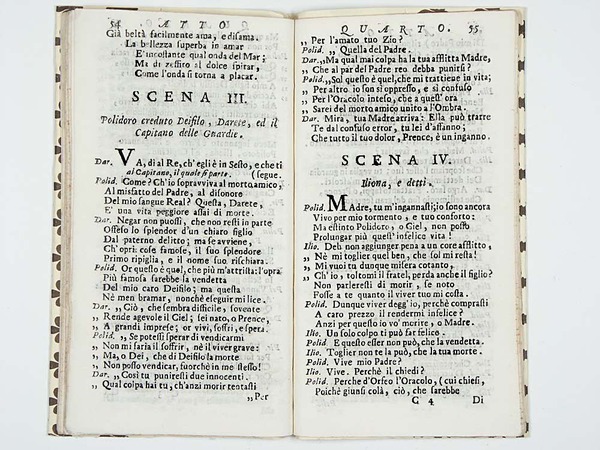 54 ATTO
Già beltà facilmente ama, e disama.
La bellezza superba in amar
E' incostante qual onda del Mar;
Ma di zeffiro al dolce spirar,
Come l'onda si torna a placar.
SCENA III.
Polidoro creduto Deifilo, Darete, ed il
Capitano delle Guardie.
Dar. VA, di al Re, ch'egli è in Sesto, e che ti
al Capitano, il quale si parte. (segue.
Polid. Come? Ch'io sopravviva al morto amico,
Al misfatto del Padre, al disonore
Del mio sangue Real? Questa, Darete,
E' una vita peggiore assai di morte.
Dar. Negar non puossi, che non resti in parte
Offeso lo splendor d'un chiaro figlio
Dal paterno delitto; ma se avviene,
Ch'opri cose famose, il suo splendore
Primo ripiglia, e il nome suo rischiara.
Polid. Or questo è quel, che più m'attrista: l'opra
Più famosa sarebbe la vendetta
Del mio caro Deifilo; ma questa
Nè men bramar, nonchè eseguir mi lice.
Dar. „ Ciò, che sembra difficile, sovente
„ Rende agevole il Ciel; sei nato, o Prence,
„ A grandi imprese; or vivi, soffri, e spera.
Polid. „ Se potessi sperar di vendicarmi
„ Non mi saria il soffrir, nè il viver grave:
„ Ma, o Dei, che di Deifilo la morte
„ Non posso vendicar, fuorchè in me stesso!
Dar. „ Così tu puniresti due innocenti.
„ Qual colpa hai tu, ch'anzi morir tentasti
„ Per
QUARTO. 55
„ Per l'amato tuo Zio?
Polid. „ Quella del Padre.
Dar. „ Ma qual mai colpa ha la tua afflitta Madre,
„ Che al par del Padre reo debba punirsi?
Polid. „ Sol questo è quel, che mi trattiene in vita;
„ Per altro io son sì oppresso, e sì confuso
„ Per l'Oracolo inteso, che a quest'ora
„ Sarei del morto amico unito a l'Ombra.
Dar. Mira, tua Madre arriva: Ella può trarre
Te dal confuso error, tu lei d'affanno;
Che tutto il tuo dolor, Prence, è un inganno.
SCENA IV.
Iliona, e detti.
Polid. MAdre, tu m'ingannasti; io sono ancora
Vivo per mio tormento, e tuo conforto:
Ma estinto Polidoro, o Ciel, non posso
Prolungar più quest'infelice vita!
Ilio. Deh non aggiunger pena a un core afflitto,
„ Nè mi toglier quel ben, che sol mi resta!
„ Mi vuoi tu dunque misera cotanto,
„ Ch'io, toltomi il fratel, perda anche il figlio?
Non parleresti di morir, se noto
Fosse a te quanto il viver tuo mi costa.
Polid. Dunque viver degg'io, perchè comprasti
A caro prezzo il rendermi infelice?
Anzi per questo io vo' morire, o Madre.
Ilio. Un solo colpo ti può far felice.
Polid. E questo esser non può, che la vendetta.
Ilio. Toglier non te la può, che la tua morte.
Polid. Vive mio Padre?
Ilio. Vive. Perchè il chiedi?
Polid. Perche d'Orfeo l'Oracolo, (cui chiesi,
Poichè giunsi colà, ciò, che sarebbe
G 4 Di